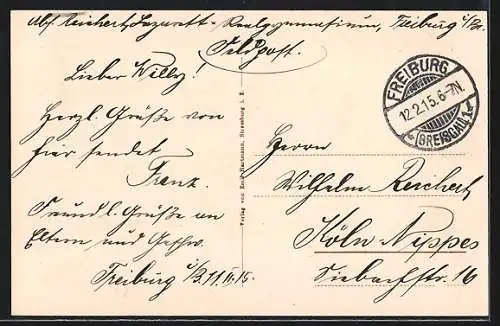 Abs. Reichert, Lazarett-Realgymnasium, Freiburg i/Br.
Feldpost.
Lieber Willy!
Herzl. Grüße von
hier sendet
Franz.
Freundl. Grüße an
Eltern und Geschw.
Freiburg i/B. 11.II.15.
Verlag von Emil Hartmann, Strassburg i. E.
FREIBURG
12.2.15.6-7N.
(BREISGAU) 1
Herrn
Wilhelm Reichert
Köln Nippes
Siebachstr. 16